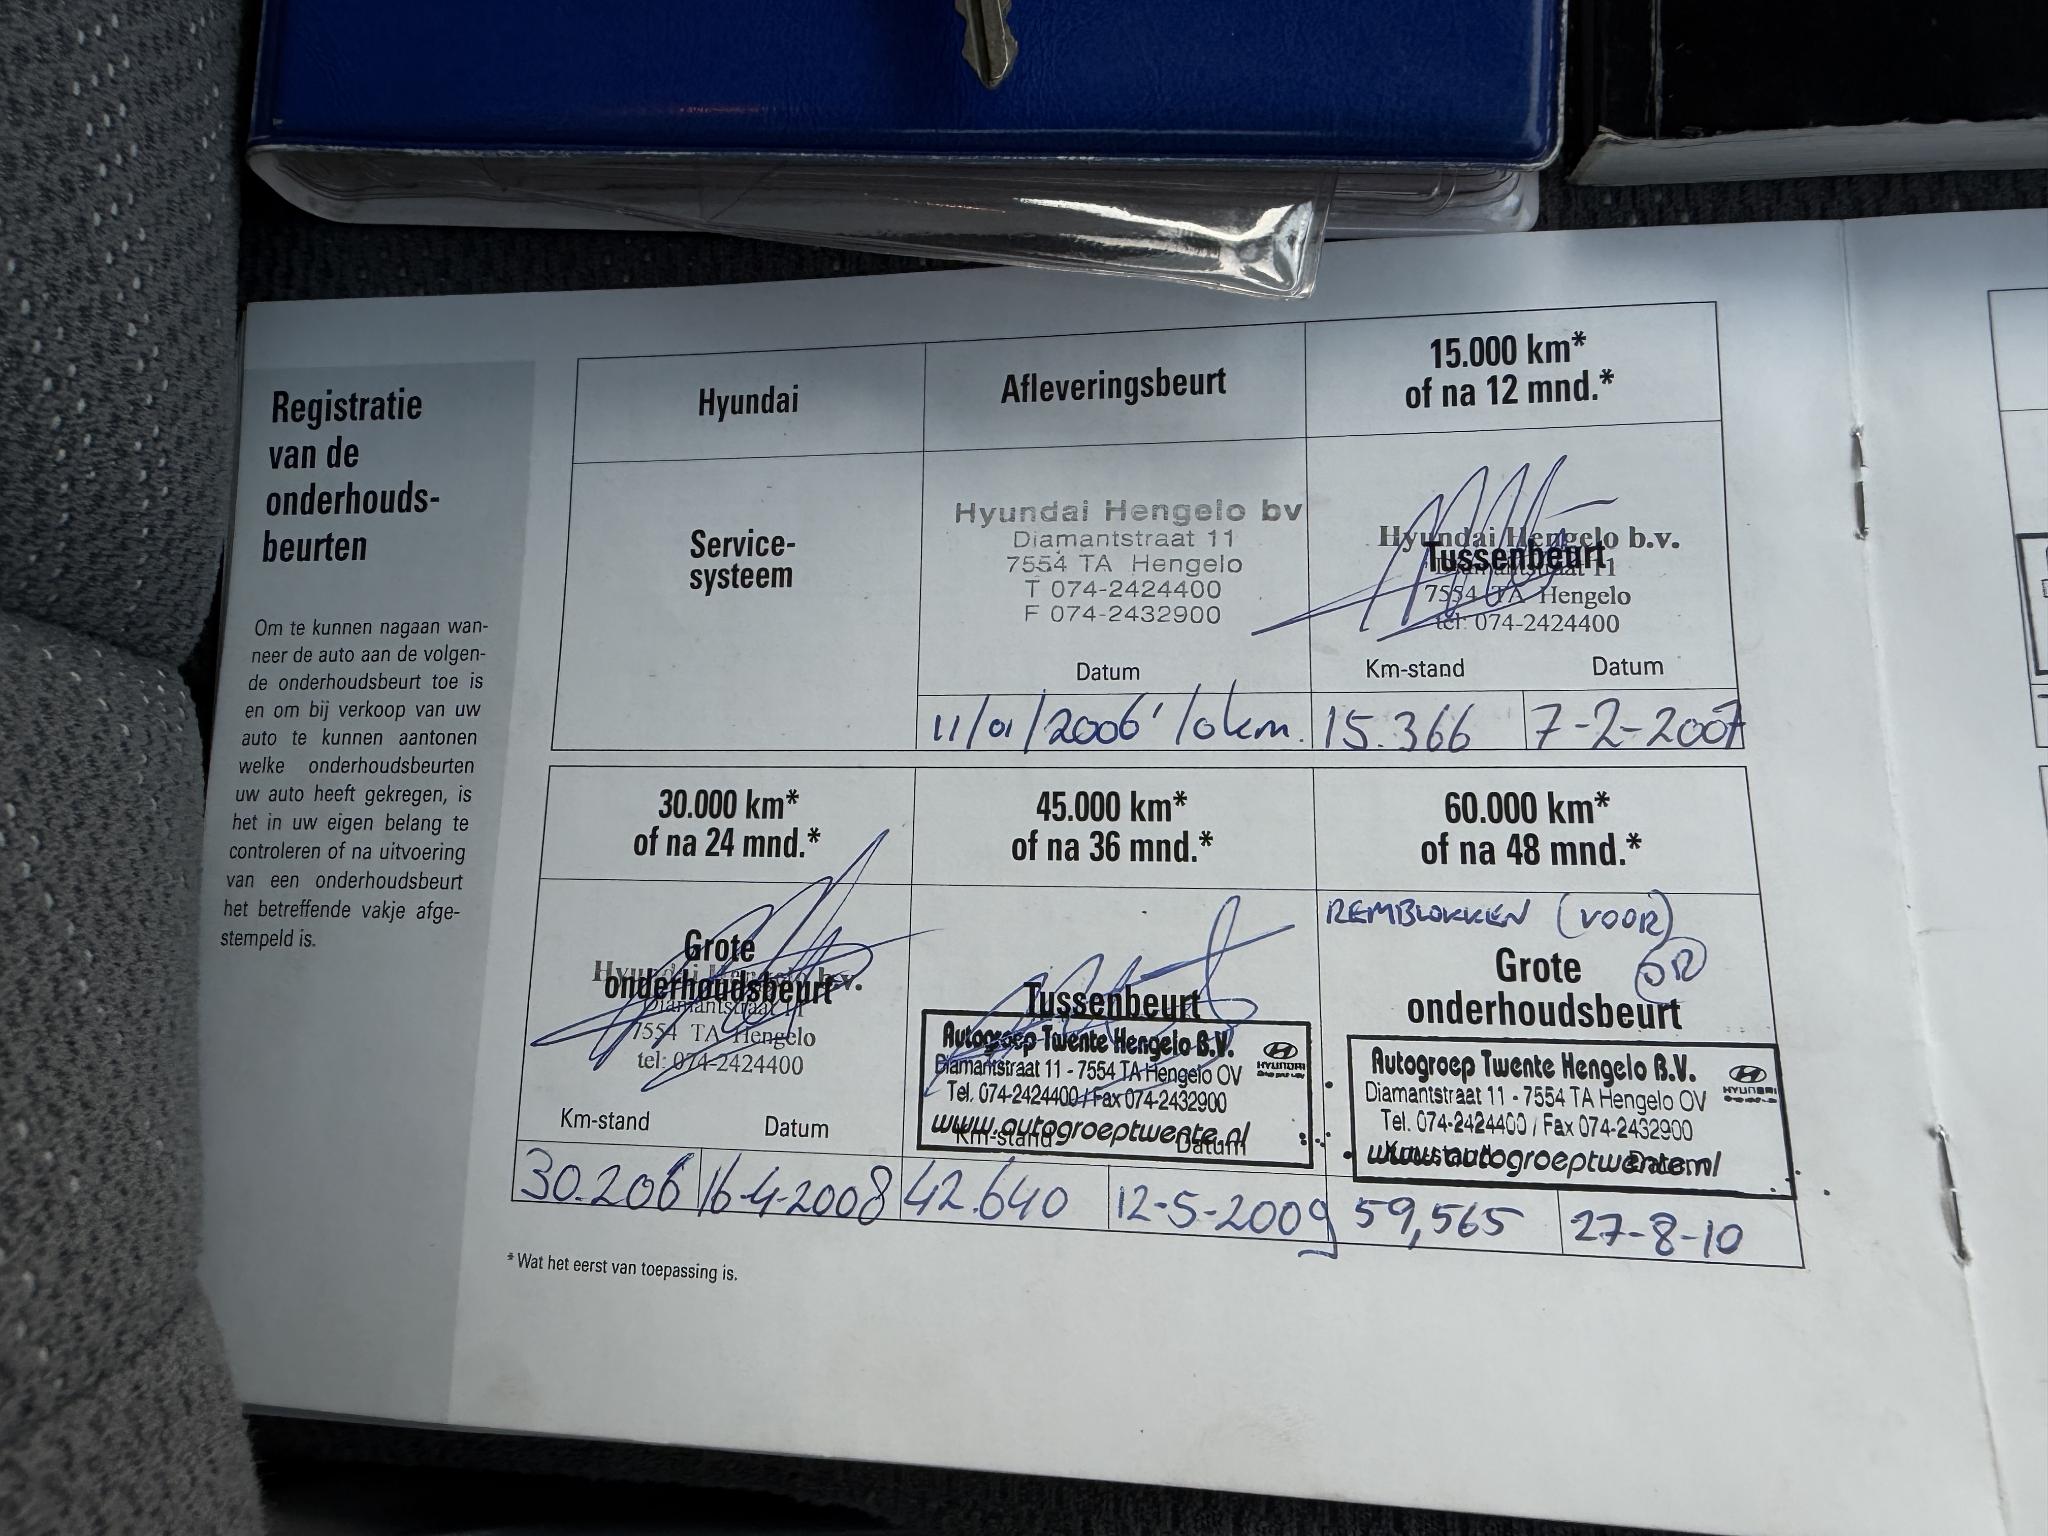 Registratie
van de
onderhouds-
beurten
Om te kunnen nagaan wan-
neer de auto aan de volgen-
de onderhoudsbeurt toe is
en om bij verkoop van uw
auto te kunnen aantonen
welke onderhoudsbeurten
uw auto heeft gekregen, is
het in uw eigen belang te
controleren of na uitvoering
van een onderhoudsbeurt
het betreffende vakje afge-
stempeld is.
Hyundai
Afleveringsbeurt
15.000 km*
of na 12 mnd.*
Service-
systeem
Hyundai Hengelo bv
Diamantstraat 11
7554 TA Hengelo
T 074-2424400
F 074-2432900
Datum
11/01/2006 /0km.
Hyundai Hengelo b.v.
Tussenbeurt
Diamantstraat 11
7554 TA Hengelo
tel: 074-2424400
Km-stand Datum
15.366 7-2-2007
30.000 km*
of na 24 mnd.*
45.000 km*
of na 36 mnd.*
60.000 km*
of na 48 mnd.*
Grote
Hyundai Hengelo b.v.
onderhoudsbeurt
Diamantstraat 11
7554 TA Hengelo
tel: 074-2424400
Km-stand Datum
30.206 16-4-2008
Tussenbeurt
Autogroep Twente Hengelo B.V.
HYUNDAI
Diamantstraat 11 - 7554 TA Hengelo OV
Tel. 074-2424400 / Fax 074-2432900
www.autogroeptwente.nl
Km-stand Datum
42.640 12-5-2009
REMBLOKKEN (VOOR)
Grote
onderhoudsbeurt
Autogroep Twente Hengelo B.V.
HYUNDAI
Diamantstraat 11 - 7554 TA Hengelo OV
Tel. 074-2424400 / Fax 074-2432900
www.autogroeptwente.nl
Km-stand Datum
59,565 27-8-10
* Wat het eerst van toepassing is.